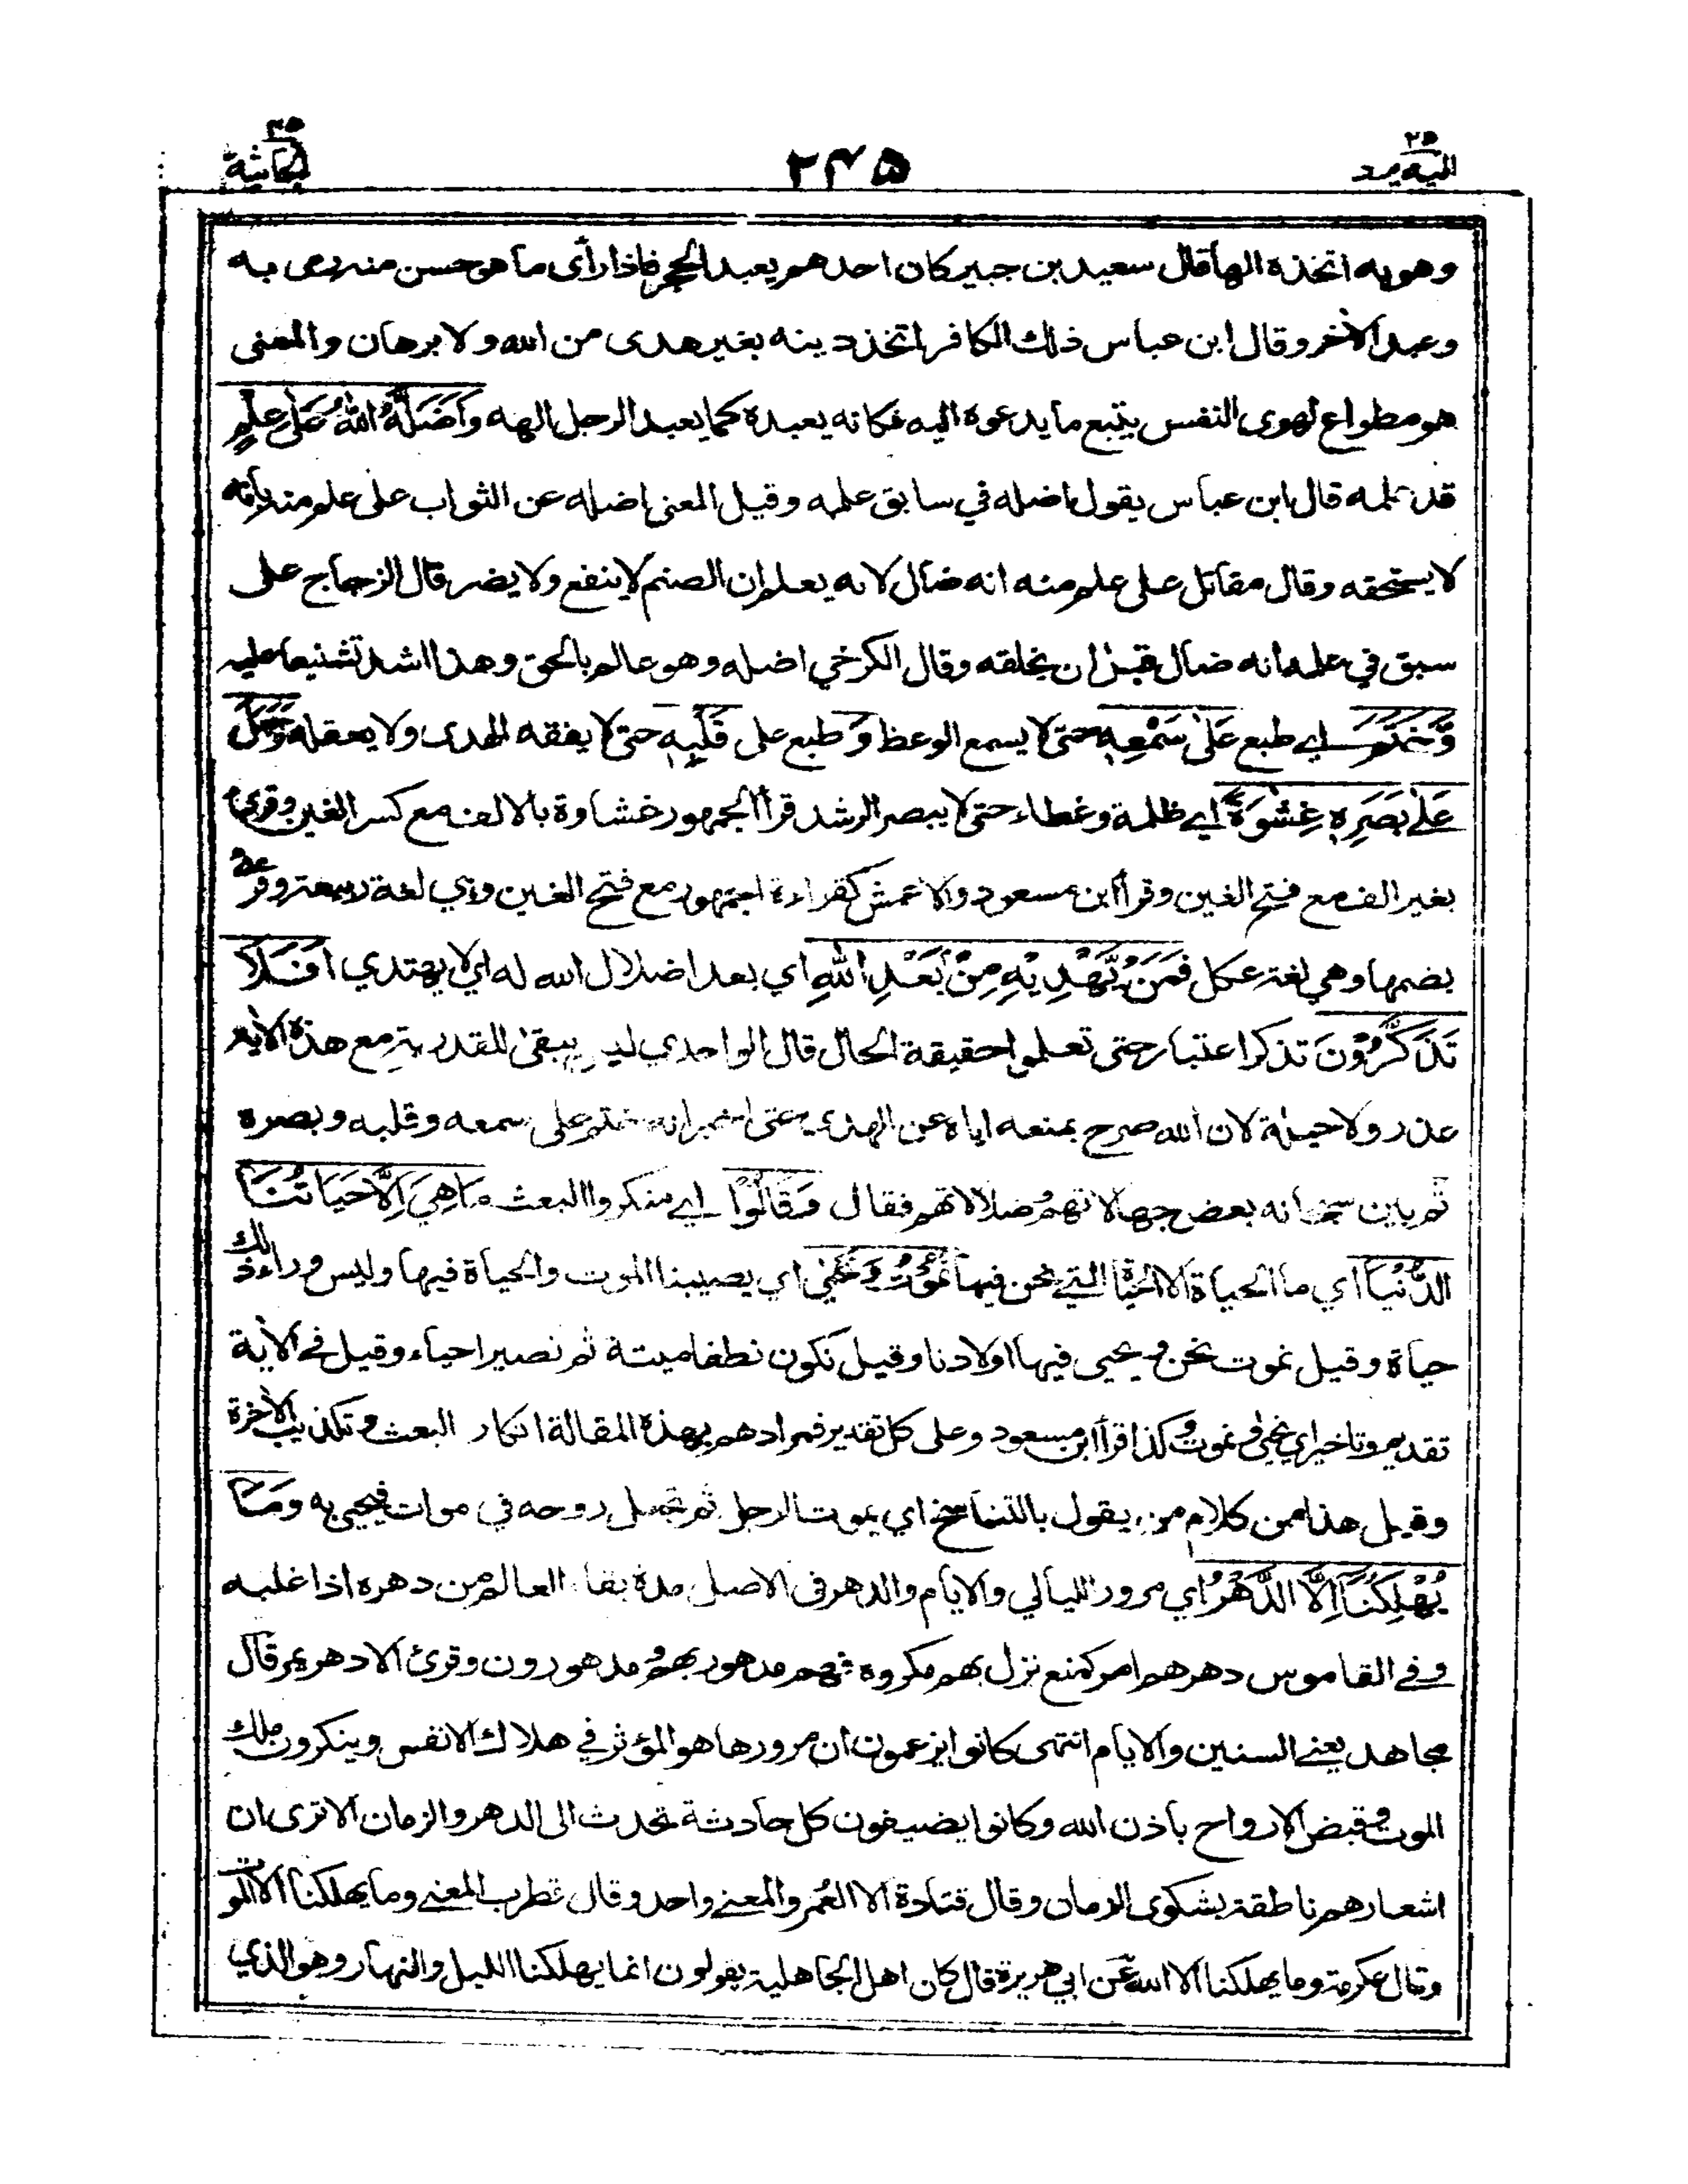 ٢٥ اليه يرد
٢٤٥
٤٥ الجاثية
وهويه اتخذه الهاً قال سعيد بن جبير كان احدهم يعبد الحجر فاذا رأى ما هو حسن منه رمى به
وعبد الأخر وقال ابن عباس ذلك الكافر اتخذ دينه بغير هدى من الله ولا برهان والمعنى
هو مطواع لهوى النفس يتبع ما يدعوه اليه فكانه يعبده كما يعبد الرجل الهه وَاَضَلَّهُ اللّٰهُ عَلٰى عِلْمٍ
قد علمه قال ابن عباس يقول اضله في سابق علمه وقيل المعنى اضله عن الثواب على علم منه بانه
لا يستحقه وقال مقاتل على علم منه انه ضال لانه يعلم ان الصنم لا ينفع ولا يضر قال الزجاج على
سبق في علمه انه ضال قبل ان يخلقه وقال الكرخي اضله وهو عالم بالحق وهذا اشد تشنيعا عليه
وَّخَتَمَ اي طبع عَلٰى سَمْعِهٖ حتى لا يسمع الوعظ وَ طبع على قَلْبِهٖ حتى لا يفقه الهدى ولا يعقله وَجَعَلَ
عَلٰى بَصَرِهٖ غِشٰوَةً اي ظلمة وغطاء حتى لا يبصر الرشد قرأ الجمهور غشاوة بالالف مع كسر الغين وقرئ
بغير الف مع فتح الغين وقرأ ابن مسعود والاعمش كقراءة الجمهور مع فتح الغين وهي لغة ربيعة وقرئ
بضمها وهي لغة عكل فَمَنْ يَّهْدِيْهِ مِنْ بَعْدِ اللّٰهِ اي بعد اضلال الله له اي لا يهتدي اَفَلَا
تَذَكَّرُوْنَ تذكر اعتبار حتى تعلموا حقيقة الحال قال الواحدي ليس يبقى للقدرية مع هذه الأية
عذر ولا حيلة لان الله صرح بمنعه اياه عن الهدى حتى اخبر انه ختم على سمعه وقلبه وبصره
ثم بين سبحانه بعض جهالاتهم وضلالاتهم فقال وَقَالُوْا اي منكروا البعث مَا هِيَ اِلَّا حَيَاتُنَا
الدُّنْيَا اي ما الحياة الا الحياة التي نحن فيها نَمُوْتُ وَنَحْيٰى اي يصيبنا الموت والحياة فيها وليس وراء ذلك
حياة وقيل نموت نحن ويحيى فيها اولادنا وقيل نكون نطفا ميتة ثم نصير احياء وقيل في الأية
تقديم وتاخير اي نحيى ونموت وكذا قرأ ابن مسعود وعلى كل تقدير فمرادهم بهذه المقالة انكار البعث وتكذيب الأخرة
وقيل هذا من كلام من يقول بالتناسخ اي يموت الرجل ثم تجعل روحه في موات فيحيى به وَمَا
يُهْلِكُنَا اِلَّا الدَّهْرُ اي مرور الليالي والايام والدهر فى الاصل مدة بقاء العالم من دهره اذا غلبه
وفي القاموس دهرهم امر كمنع نزل بهم مكروه فهم مدهور بهم ومدهورون وقرئ الا دهر يمر قال
مجاهد يعني السنين والايام انتهى كانوا يزعمون ان مرورها هو المؤثر في هلاك الانفس وينكرون ملك
الموت وقبض الارواح باذن الله وكانوا يضيفون كل حادثة تحدث الى الدهر والزمان الا ترى ان
اشعارهم ناطقة بشكوى الزمان وقال قتادة الا العُمر والمعنى واحد وقال قطرب المعنى وما يهلكنا الا الموت
وقال عكرمة وما يهلكنا الا الله عن ابي هريرة قال كان اهل الجاهلية يقولون انما يهلكنا الليل والنهار وهو الذي